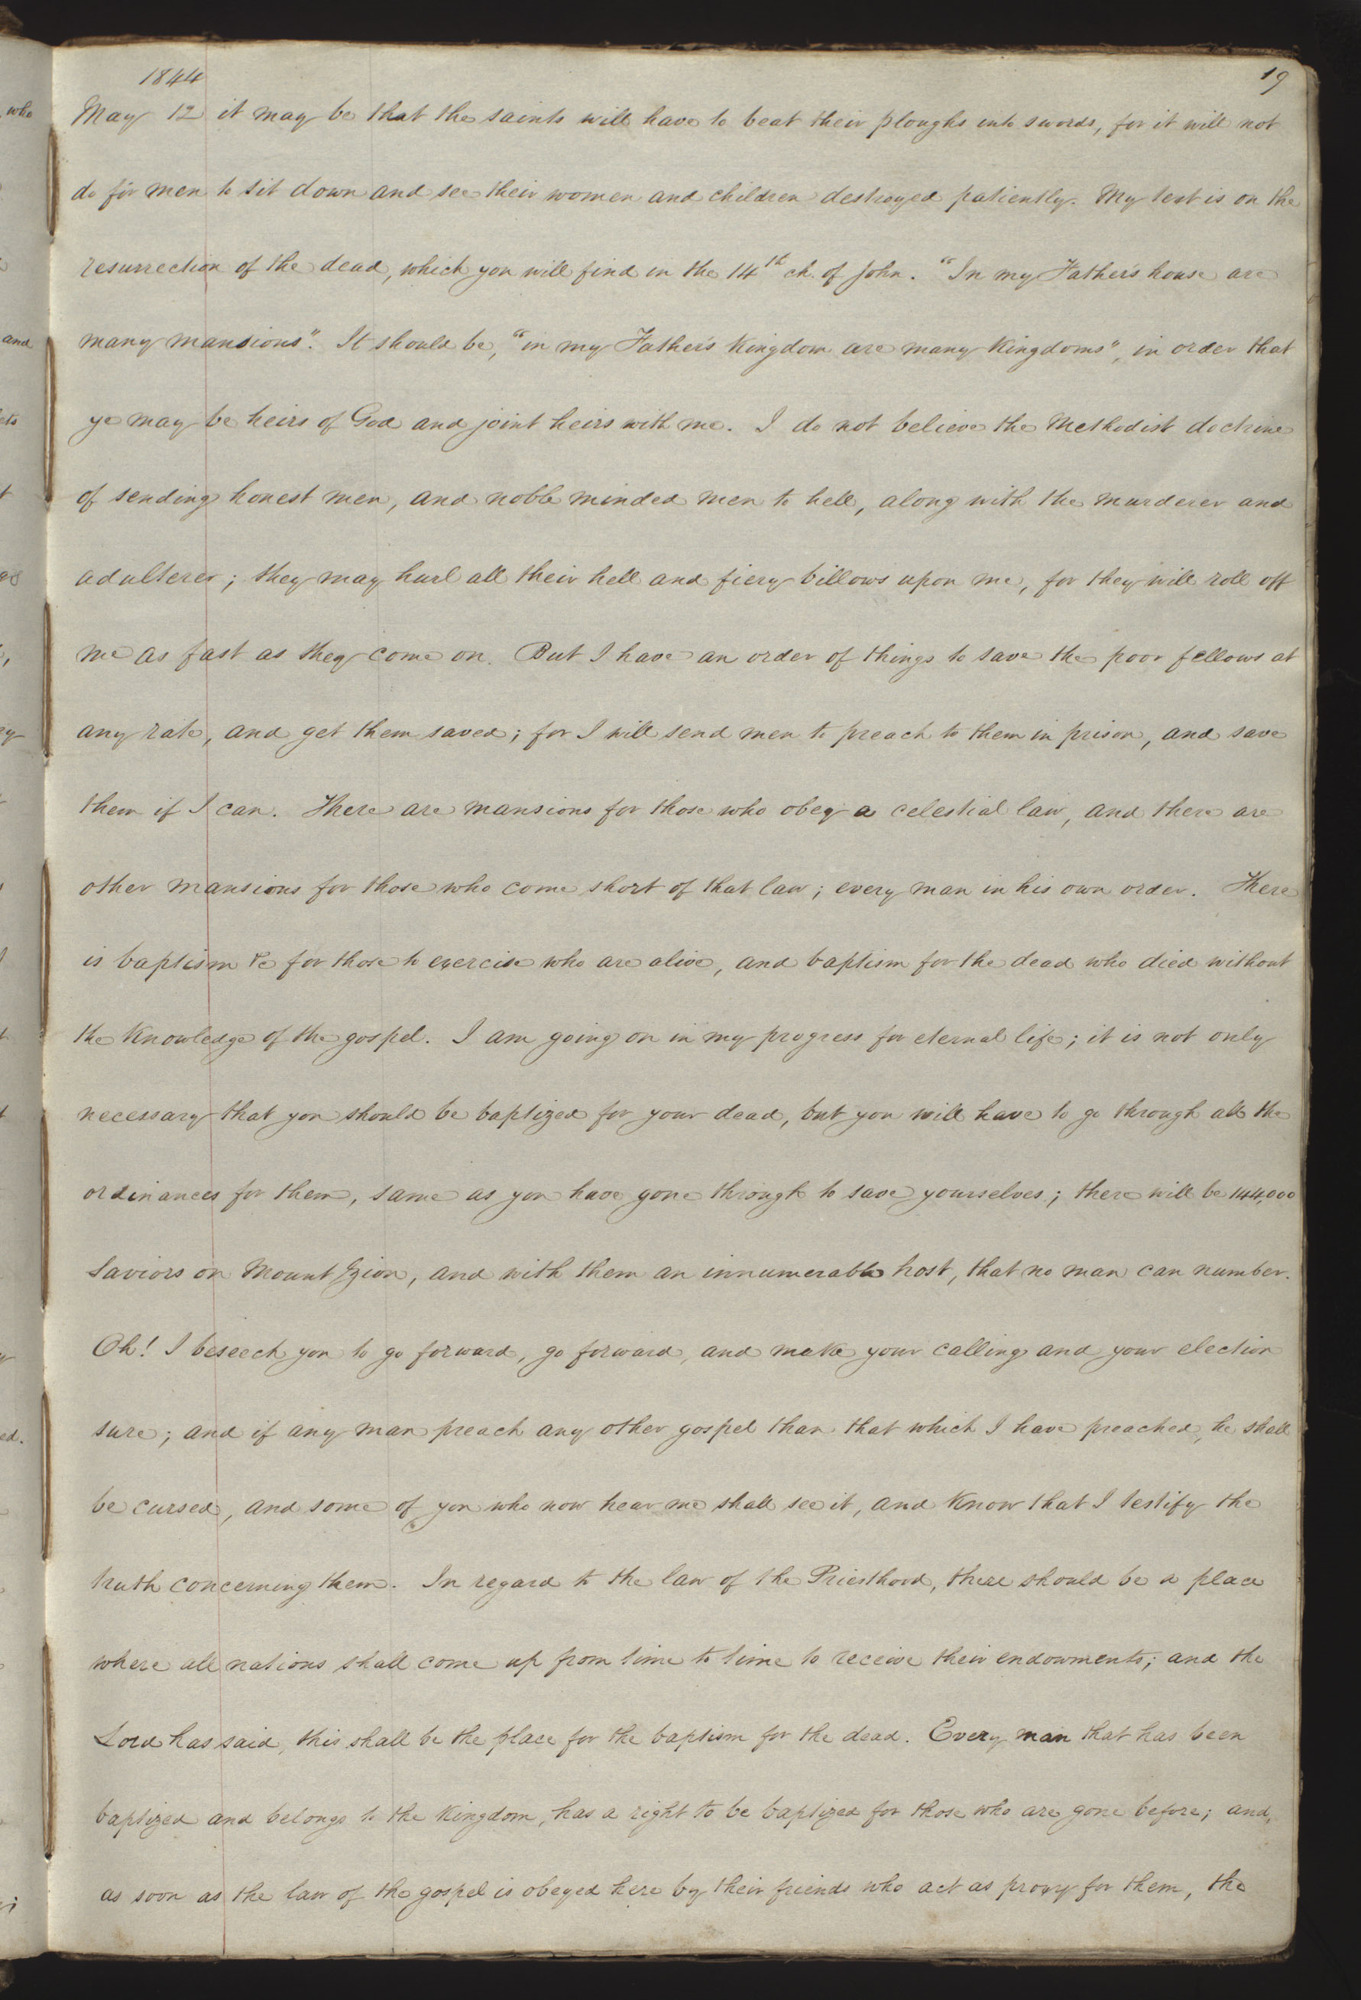 1844
19
May 12 it may be that the saints will have to beat their ploughs into swords, for it will not
do for men to sit down and see their women and children destroyed patiently. My text is on the
resurrection of the dead, which you will find in the 14th ch. of John. "In my Father's house are
many mansions". It should be, "in my Father's Kingdom are many Kingdoms", in order that
ye may be heirs of God and joint heirs with me. I do not believe the Methodist doctrine
of sending honest men, and noble minded men to hell, along with the murderer and
adulterer; they may hurl all their hell and fiery billows upon me, for they will roll off
me as fast as they come on. But I have an order of things to save the poor fellows at
any rate, and get them saved; for I will send men to preach to them in prison, and save
them if I can. There are mansions for those who obey a celestial law, and there are
other mansions for those who come short of that law; every man in his own order. There
is baptism &c for those to exercise who are alive, and baptism for the dead who died without
the Knowledge of the gospel. I am going on in my progress for eternal life; it is not only
necessary that you should be baptized for your dead, but you will have to go through all the
ordinances for them, same as you have gone through to save yourselves; there will be 144,000
Saviors on Mount Zion, and with them an innumerable host, that no man can number.
Oh! I beseech you to go forward, go forward, and make your calling and your election
sure; and if any man preach any other gospel than that which I have preached, he shall
be cursed, and some of you who now hear me shall see it, and Know that I testify the
truth concerning them. In regard to the law of the Priesthood, there should be a place
where all nations shall come up from time to time to receive their endowments; and the
Lord has said, this shall be the place for the baptism for the dead. Every man that has been
baptized and belongs to the Kingdom, has a right to be baptized for those who are gone before; and,
as soon as the law of the gospel is obeyed here by their friends who act as proxy for them, the
who
and
ed.